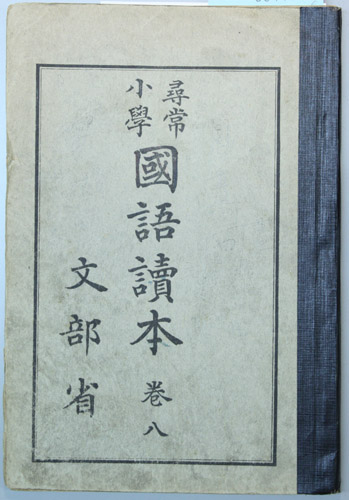 尋常小學國語讀本 卷八
文部省